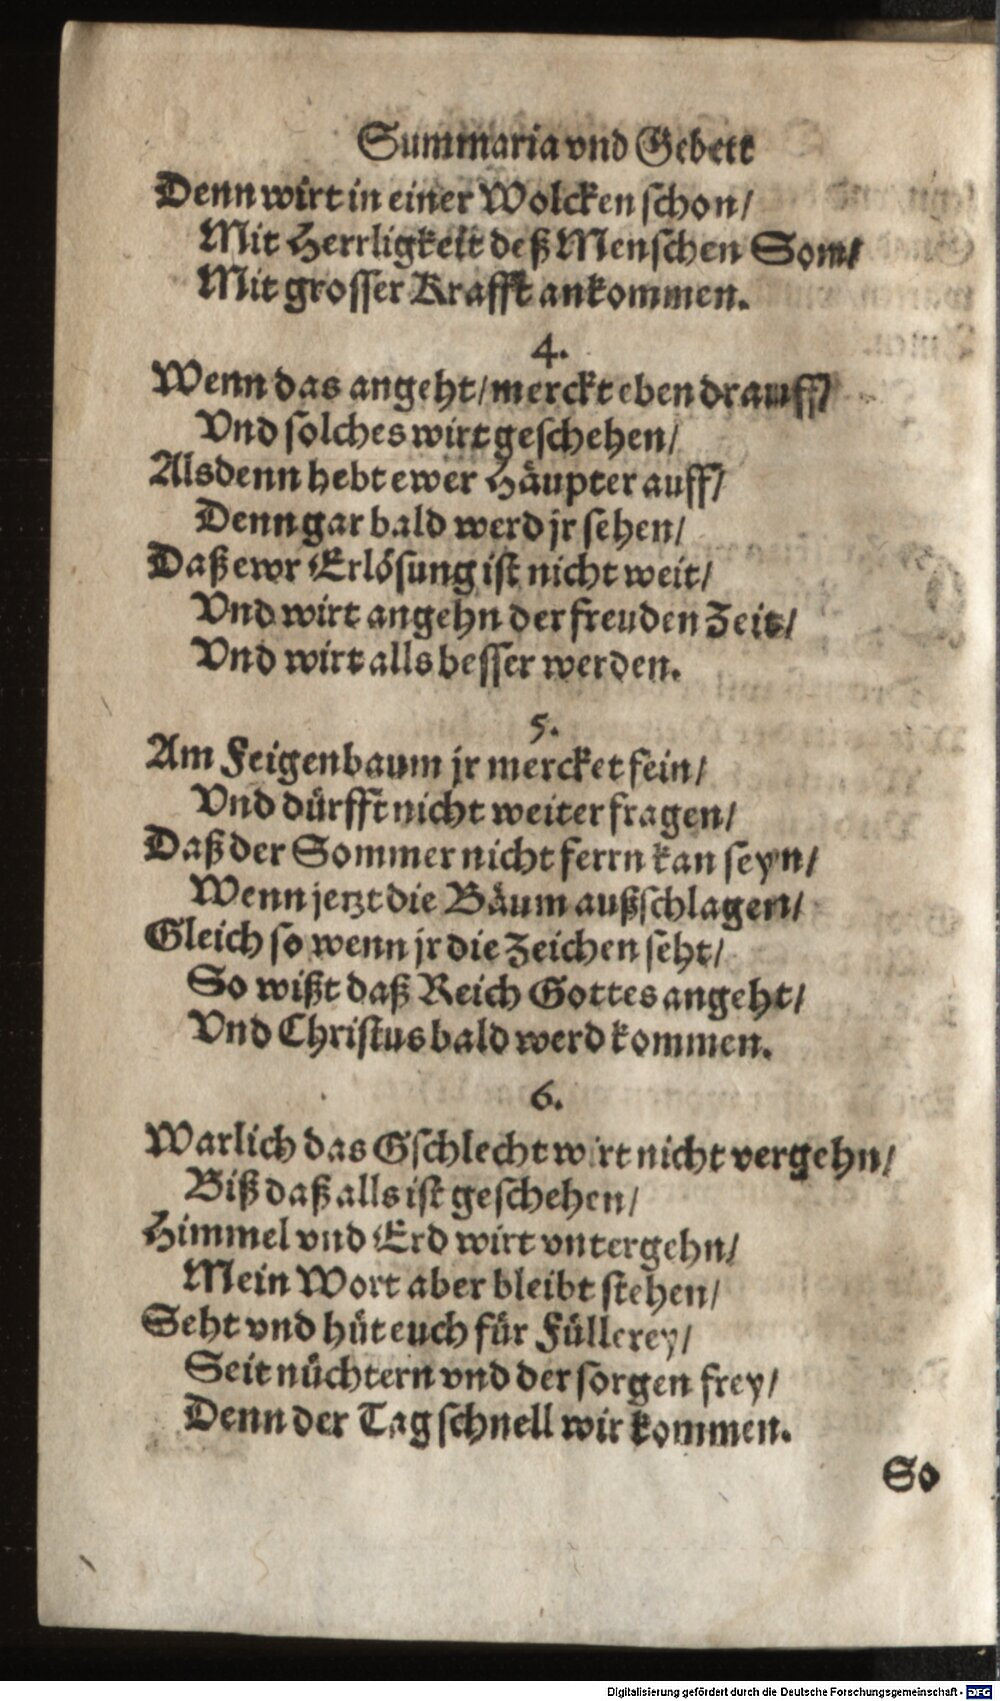 Summaria vnd Gebett
Denn wirt in einer Wolcken schon/
Mit Herrligkeit deß Menschen Som/
Mit grosser Krafft ankommen.
4.
Wenn das angeht/ merckt eben drauff/
Vnd solches wirt geschehen/
Alsdenn hebt ewer Häupter auff/
Denn gar bald werd jr sehen/
Daß ewr Erlösung ist nicht weit/
Vnd wirt angehn der freuden Zeit/
Vnd wirt alls besser werden.
5.
Am Feigenbaum jr mercket fein/
Vnd dürfft nicht weiter fragen/
Daß der Sommer nicht ferrn kan seyn/
Wenn jetzt die Bäum außschlagen/
Gleich so wenn jr die Zeichen seht/
So wißt daß Reich Gottes angeht/
Vnd Christus bald werd kommen.
6.
Warlich das Gschlecht wirt nicht vergehn/
Biß daß alls ist geschehen/
Himmel vnd Erd wirt vntergehn/
Mein Wort aber bleibt stehen/
Seht vnd hüt euch für Füllerey/
Seit nüchtern vnd der sorgen frey/
Denn der Tag schnell wir kommen.
So
Digitalisierung gefördert durch die Deutsche Forschungsgemeinschaft - DFG